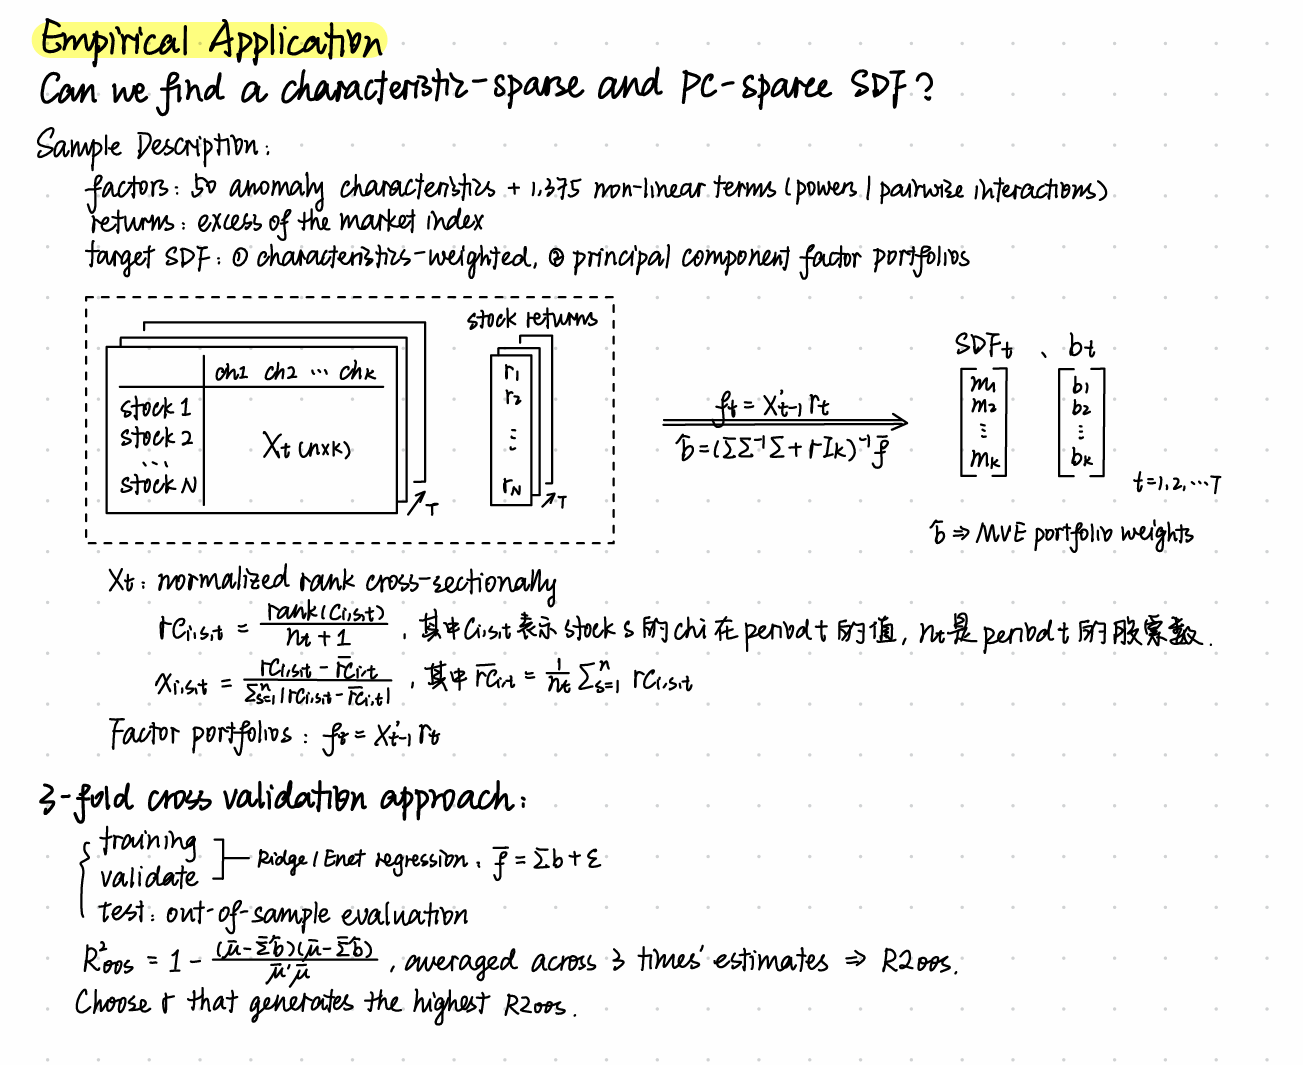 Empirical Application
Can we find a characteristic-sparse and PC-sparce SDF?
Sample Description:
factors: 50 anomaly characteristics + 1,375 non-linear terms (powers / pairwise interactions)
returns: excess of the market index
target SDF: ① characteristics-weighted, ② principal component factor portfolios
stock returns
ch1 ch2 ... chk
stock 1
stock 2
...
stock N
Xt (n×k)
T
r1
r2
⋮
rN
T
ft = X't-1 rt
b̂ = (Σ̄Σ⁻¹Σ̄ + rIk)⁻¹ f̄
SDFt 、 bt
m1
m2
⋮
mk
b1
b2
⋮
bk
t=1,2,...T
b̂ ⇒ MVE portfolio weights
Xt: normalized rank cross-sectionally
rCi,s,t = rank(Ci,s,t) / nt + 1 , 其中Ci,s,t表示stock s的chi在period t的值, nt是period t的股票数.
xi,s,t = rCi,s,t - r̄Ci,t / Σⁿs=1 |rCi,s,t - r̄Ci,t| , 其中 r̄Ci,t = 1/nt Σⁿs=1 rCi,s,t
Factor portfolios: ft = X't-1 rt
3-fold cross validation approach:
training
validate
Ridge / Enet regression: f̄ = Σ̄b + ε
test: out-of-sample evaluation
R²oos = 1 - (μ̄ - Σ̄b̂)(μ̄ - Σ̄b̂) / μ̄'μ̄ , averaged across 3 times' estimates ⇒ R2oos.
Choose r that generates the highest R2oos.